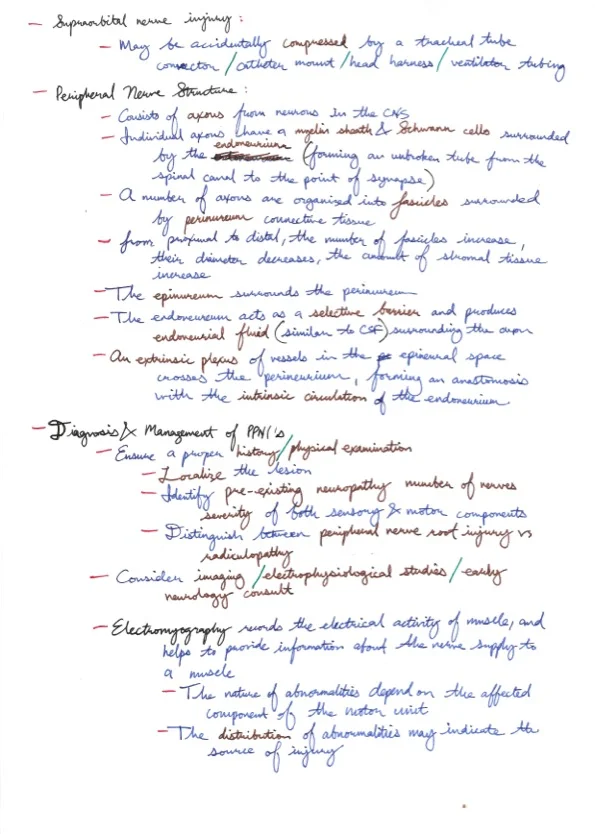 - Supraorbital nerve injury :
- May be accidentally compressed by a tracheal tube
connector / catheter mount / head harness / ventilator tubing
- Peripheral Nerve Structure :
- Consists of axons from neurons in the CNS
- Individual axons have a myelin sheath & Schwann cells surrounded
by the endoneurium (forming an unbroken tube from the
spinal canal to the point of synapse)
- A number of axons are organized into fasicles surrounded
by perineureum connective tissue
- from proximal to distal, the number of fasicles increase,
their diameter decreases, the amount of stromal tissue
increase
- The epineureum surrounds the perineureum
- The endoneureum acts as a selective barrier and produces
endoneurial fluid (similar to CSF) surrounding the axon
- An extrinsic plexus of vessels in the epineural space
crosses the perineurium, forming an anastomosis
with the intrinsic circulation of the endoneurium
- Diagnosis & Management of PPNI's
- Ensure a proper history / physical examination
- Localize the lesion
- Identify pre-existing neuropathy number of nerves
severity of both sensory & motor components
- Distinguish between peripheral nerve root injury vs
radiculopathy
- Consider imaging / electrophysiological studies / early
neurology consult
- Electromyography records the electrical activity of muscle, and
helps to provide information about the nerve supply to
a muscle
- The nature of abnormalities depend on the affected
component of the motor unit
- The distribution of abnormalities may indicate the
source of injury